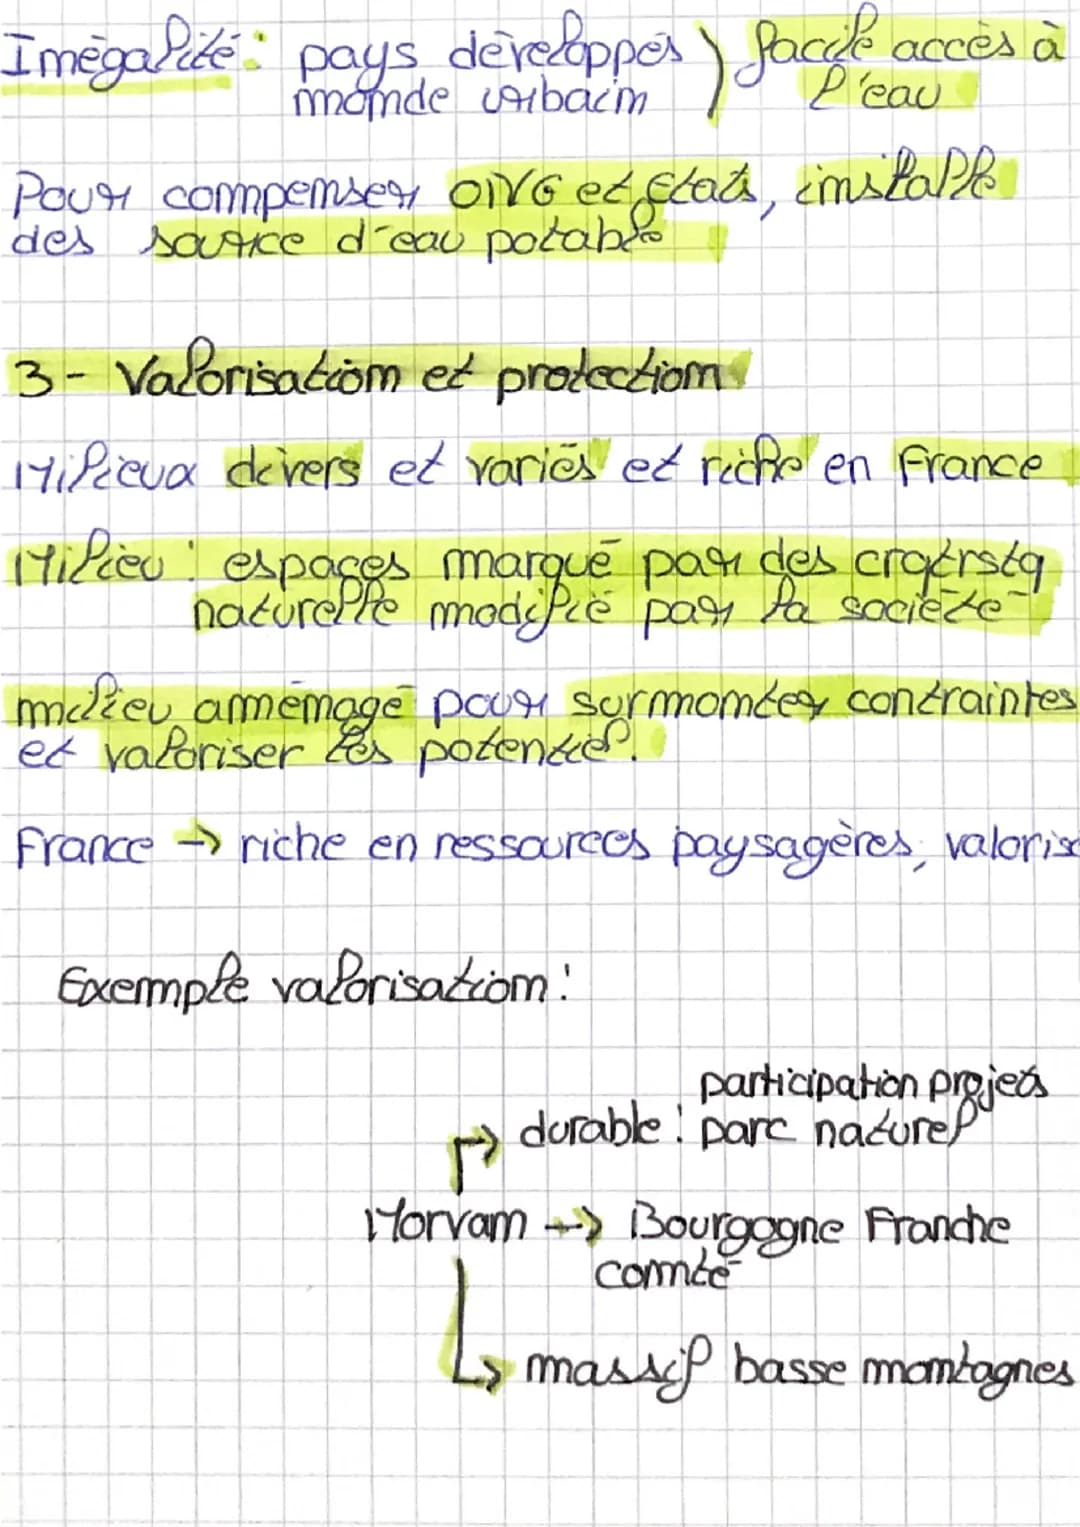 Inégalité : pays développés ) facile accès à
monde urbain l'eau
Pour compenser ONG et Etats, installe
des source d'eau potable
3 - Valorisation et protection
Milieux divers et variés et riche en France
Milieu : espaces marqué par des crqtrstq
naturelle modifié par la société
milieu amménagé pour surmonter contraintes
et valoriser les potentiel.
France → riche en ressources paysagères, valoris
Exemple valorisation :
participation projets
durable : parc naturel
Morvan → Bourgogne Franche
comté
massif basse montagnes